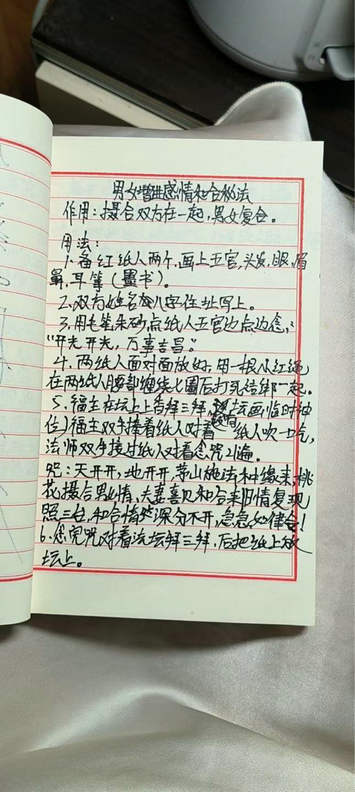 男女增进感情和合秘法
作用：撮合双方在一起，男女复合。
用法：
1.备红纸人两个，画上五官，头发，眼，眉
鼻，耳等（墨书）。
2.双方姓名加八字住址写上。
3.用毛笔朱砂点纸人五官边点边念：
“开光开光，万事吉昌。”
4.两纸人面对面放好，用一根小红绳
在两纸人腰部缠绕七圈后打死结绑一起。
5.福主在坛上上香拜三拜，（坛画临时神
位）福主双手接着纸人对着纸人吹一口气，
法师双手接过纸人对着念咒21遍。
咒：天开开，地开开，茅山施法和缘来，桃
花撮合男女情，夫妻喜见和合来旧情复现
照三台，和合情深分不开，急急如律令！
6.念完咒对着法坛拜三拜，后把纸上放
坛上。